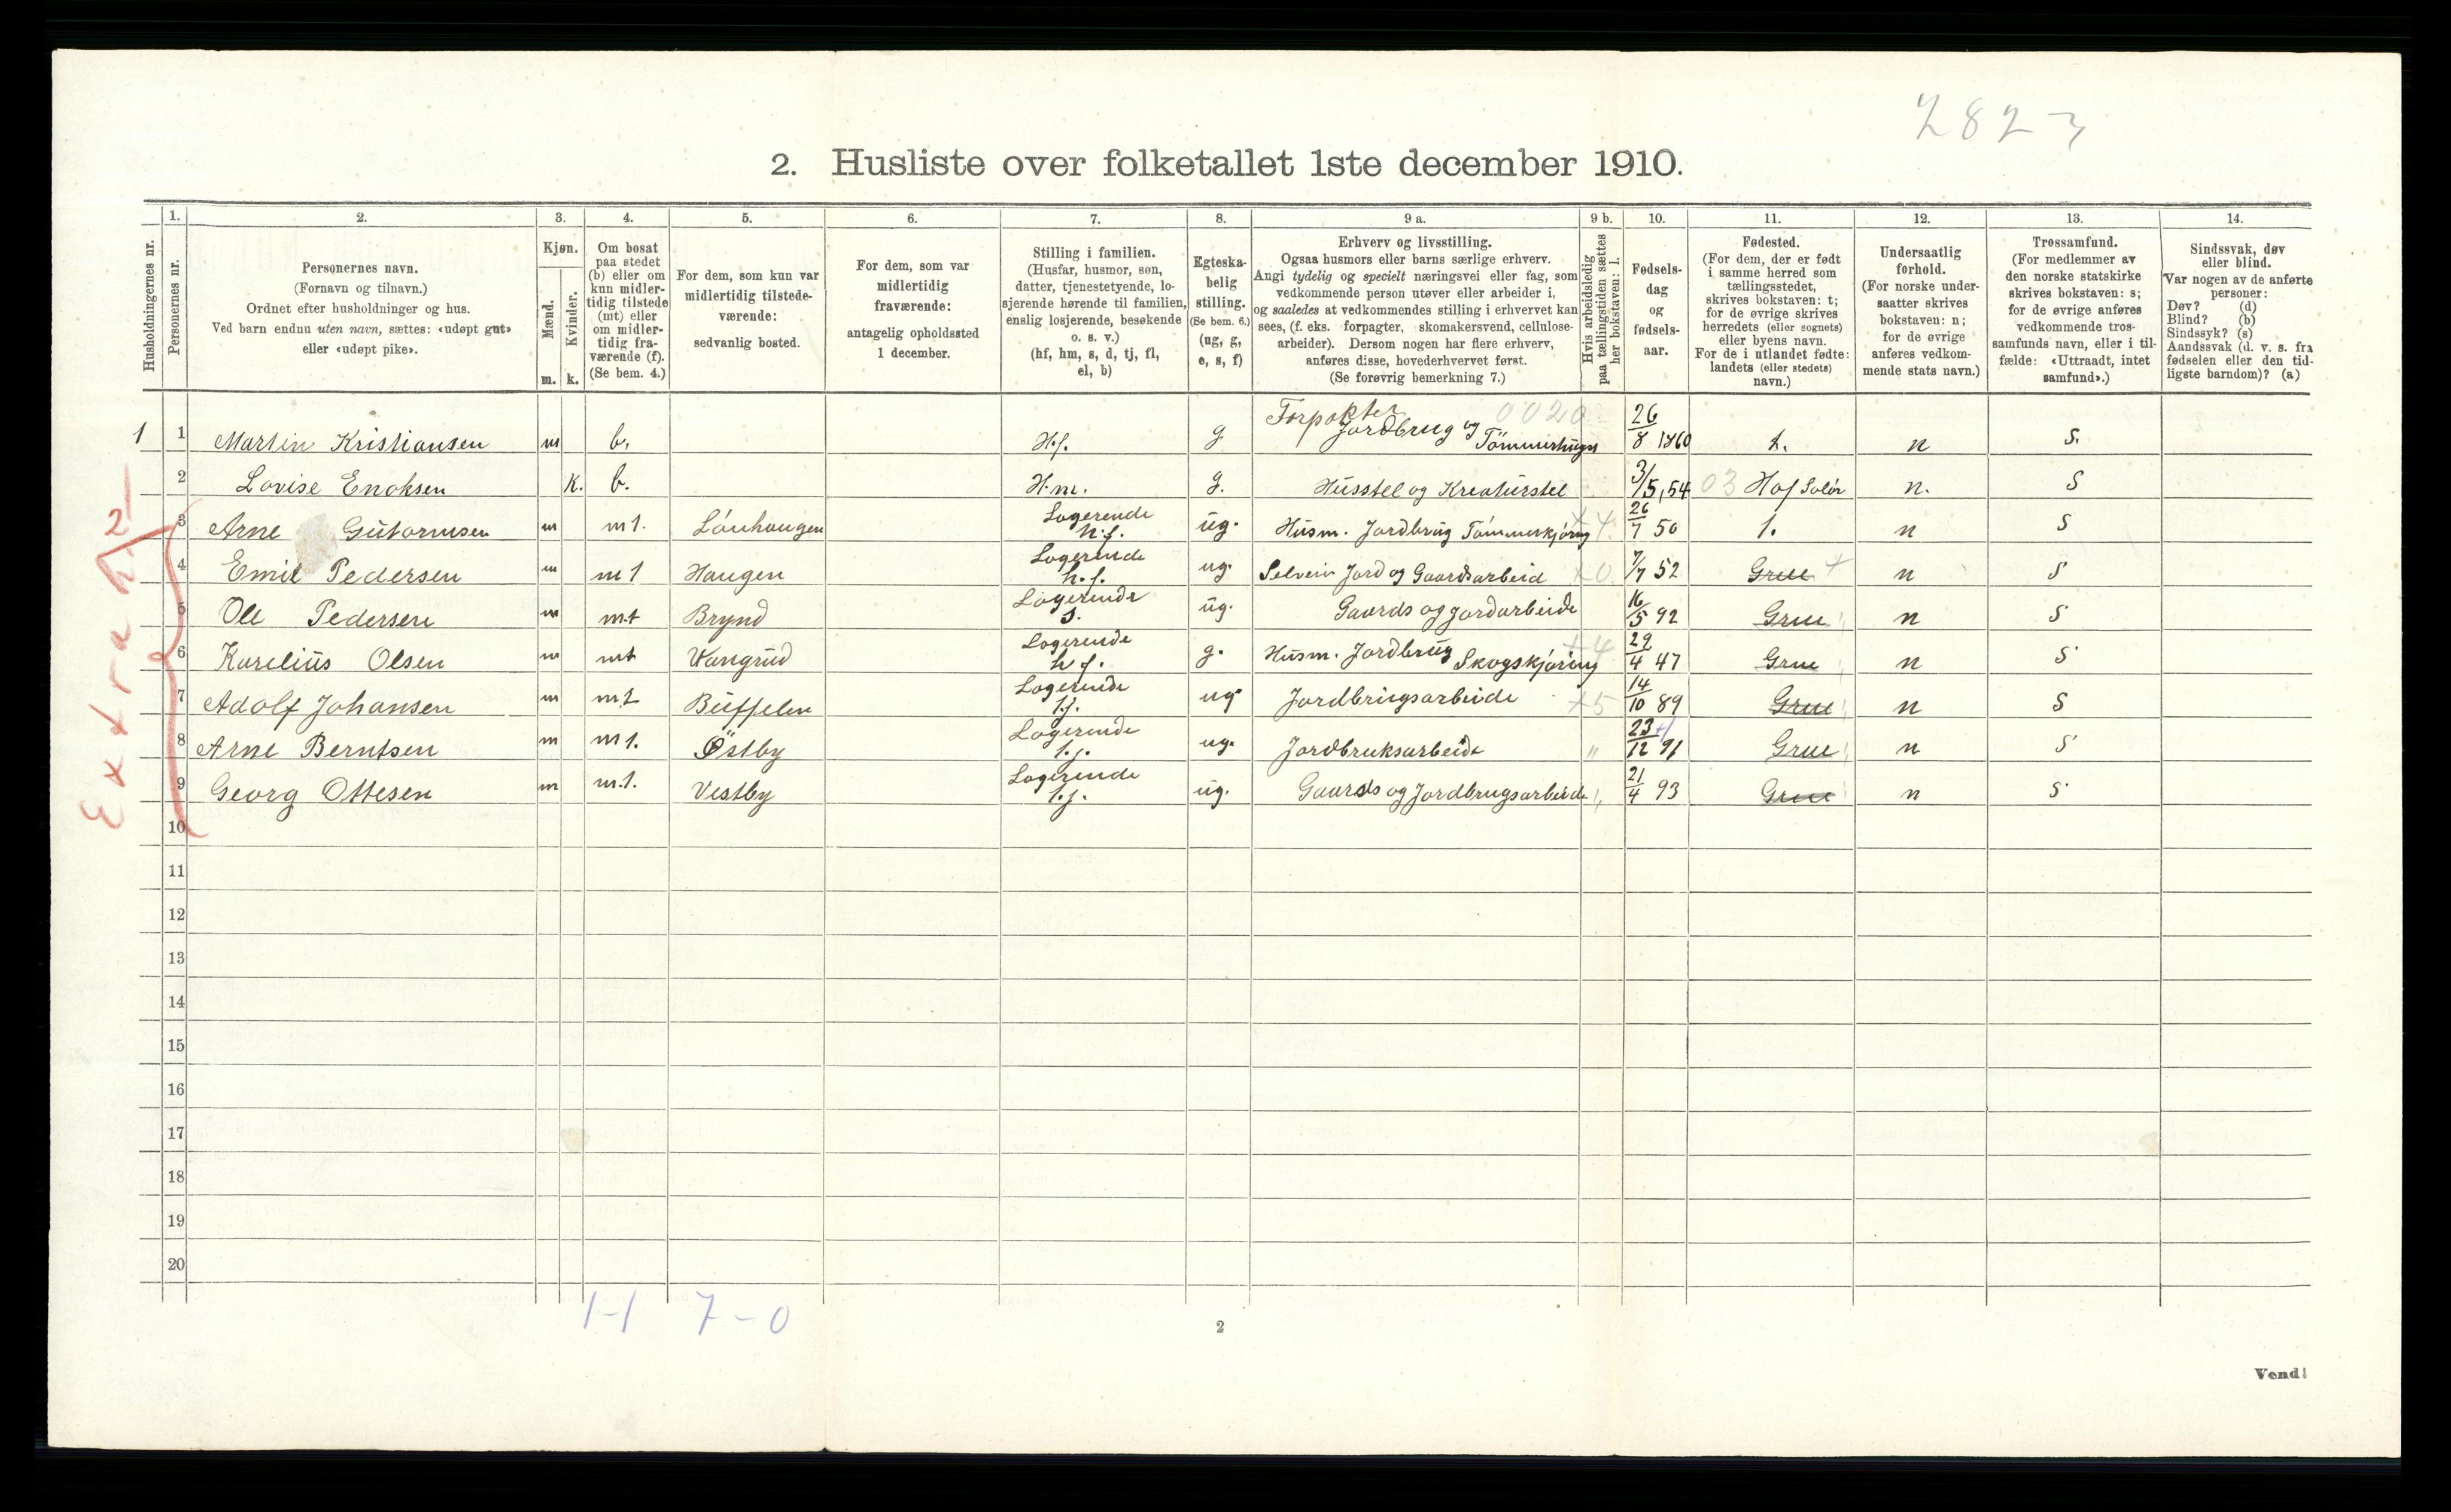 2823
2. Husliste over folketallet 1ste december 1910.
Husholdningernes nr.
1. Personernes nr.
2. Personernes navn.
(Fornavn og tilnavn.)
Ordnet efter husholdninger og hus.
Ved barn endnu uten navn, sættes: «udøpt gut»
eller «udøpt pike».
3. Kjøn.
Mænd. m.
Kvinder. k.
4. Om bosat
paa stedet
(b) eller om
kun midler-
tidig tilstede
(mt) eller
om midler-
tidig fra-
værende (f).
(Se bem. 4.)
5. For dem, som kun var
midlertidig tilstede-
værende:
sedvanlig bosted.
6. For dem, som var
midlertidig
fraværende:
antagelig opholdssted
1 december.
7. Stilling i familien.
(Husfar, husmor, søn,
datter, tjenestetyende, lo-
sjerende hørende til familien,
enslig losjerende, besøkende
o. s. v.)
(hf, hm, s, d, tj, fl,
el, b)
8. Egteska-
belig
stilling.
(Se bem. 6.)
(ug, g,
e, s, f)
9 a. Erhverv og livsstilling.
Ogsaa husmors eller barns særlige erhverv.
Angi tydelig og specielt næringsvei eller fag, som
vedkommende person utøver eller arbeider i,
og saaledes at vedkommendes stilling i erhvervet kan
sees, (f. eks. forpagter, skomakersvend, cellulose-
arbeider). Dersom nogen har flere erhverv,
anføres disse, hovederhvervet først.
(Se forøvrig bemerkning 7.)
9 b. Hvis arbeidsledig
paa tællingstiden sættes
her bokstaven: l.
10. Fødsels-
dag
og
fødsels-
aar.
11. Fødested.
(For dem, der er født
i samme herred som
tællingsstedet,
skrives bokstaven: t;
for de øvrige skrives
herredets (eller sognets)
eller byens navn.
For de i utlandet fødte:
landets (eller stedets)
navn.)
12. Undersaatlig
forhold.
(For norske under-
saatter skrives
bokstaven: n;
for de øvrige
anføres vedkom-
mende stats navn.)
13. Trossamfund.
(For medlemmer av
den norske statskirke
skrives bokstaven: s;
for de øvrige anføres
vedkommende tros-
samfunds navn, eller i til-
fælde: «Uttraadt, intet
samfund».)
14. Sindssvak, døv
eller blind.
Var nogen av de anførte
personer:
Døv? (d)
Blind? (b)
Sindssyk? (s)
Aandssvak (d. v. s. fra
fødselen eller den tid-
ligste barndom)? (a)
1 1 Martin Kristiansen m b. H.f. g Forpakter Jordbrug og Tömmerhugst 0020 26/8 1860 t. n s.
2 Lovise Enoksen k. b. H.m. g. Husstel og Kreaturstel 3/5, 54 03 Hof Solör n. s
3 Arne Gutormsen m mt. Lönhaugen Logerende h.f. ug. Husm. Jordbrug Tömmerkjöring x4 26/7 50 t. n s
4 Emil Pedersen m mt Haugen Logerende h.f. ug. Selveier Jord og Gaardsarbeid x0 7/7 52 Grue n s
5 Ole Pedersen m mt Brynd Logerende s. ug. Gaards og jordarbeide 16/5 92 Grue n s
6 Karelius Olsen m mt Vangrud Logerende h f. g. Husm. Jordbrug Skogskjöring x4 29/4 47 Grue n s
7 Adolf Johansen m mt Buffelen Logerende t.j. ug Jordbrugsarbeide x5 14/10 89 Grue n s
8 Arne Berntsen m mt. Östby Logerende t.j. ug. Jordbruksarbeide " 23/12 91 Grue n s
9 Georg Ottesen m m.t. Vestby Logerende t.j. ug. Gaards og Jordbrugsarbeide 21/4 93 Grue n s
10
11
12
13
14
15
16
17
18
19
20
Extra h. 2
1-1 7-0
2
Vend!